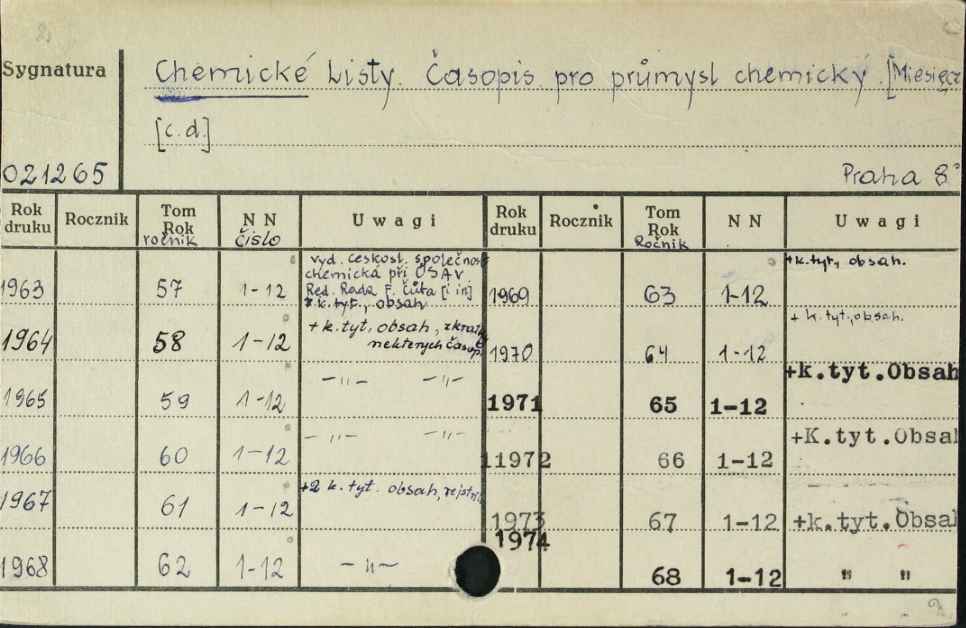 Sygnatura Chemické Listy. Časopis pro průmysl chemický. [Miesięcz
[c.d.]
021265 Praha 8°
Rok druku Rocznik Tom Rok ročnik N N čislo Uwagi Rok druku Rocznik Tom Rok Ročnik N N Uwagi
1963 57 1-12 vyd. českosl. společnost chemická při ČSAV Red. Rada F. Čůta [i in] + k. tyt., obsah 1969 63 1-12 +k.tyt, obsah.
1964 58 1-12 + k. tyt, obsah, zkratky nekterych časop. 1970 64 1-12 + k. tyt., obsah.
1965 59 1-12 –"– –"– 1971 65 1-12 +k.tyt.Obsah
1966 60 1-12 –"– –"– 11972 66 1-12 +K.tyt.Obsah
1967 61 1-12 +2 k. tyt. obsah, rejstř. 1973 67 1-12 +k.tyt.Obsah
1968 62 1-12 –"– 1974 68 1-12 " "